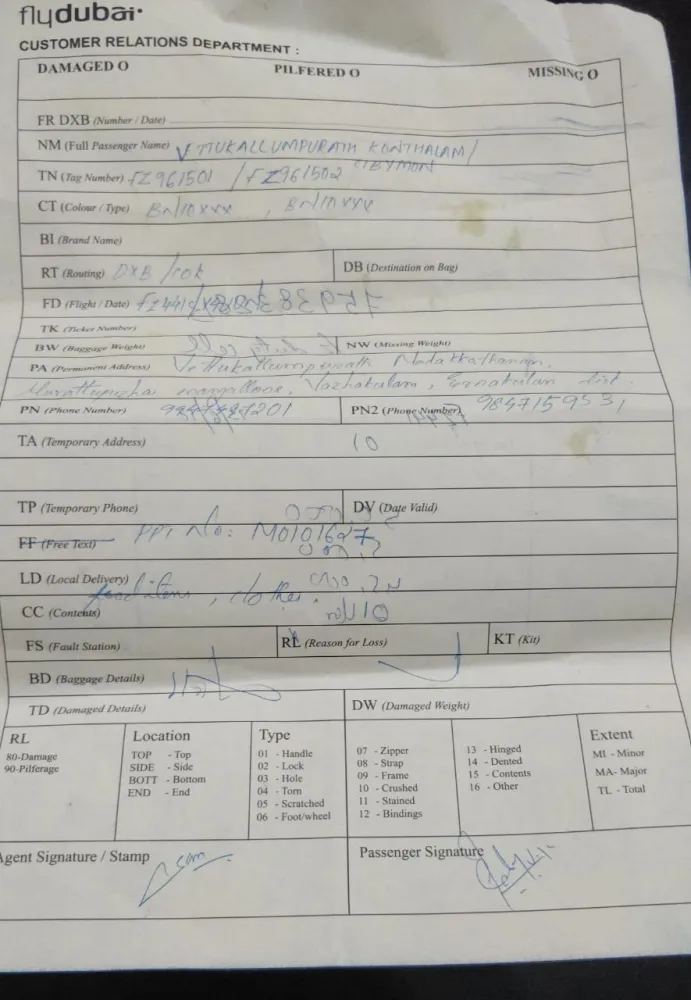 flydubai
CUSTOMER RELATIONS DEPARTMENT :
DAMAGED O PILFERED O MISSING O
FR DXB (Number / Date)
NM (Full Passenger Name) VETTUKALLUMPURATH KONTHALAM/
CIBYMON
TN (Tag Number) FZ961501 / FZ961502
CT (Colour / Type) Bn/10xxx , Bn/10xxx
BI (Brand Name)
RT (Routing) DXB / COK DB (Destination on Bag)
FD (Flight / Date) FZ441
TK (Ticket Number)
BW (Baggage Weight) NW (Missing Weight)
PA (Permanent Address) Vettukallumpurath
Vazhakulam, Ernakulam dist.
PN (Phone Number) PN2 (Phone Number) 9847159531
TA (Temporary Address) 10
TP (Temporary Phone) DV (Date Valid)
FF (Free Text) PPT No: M0101627
LD (Local Delivery)
food items, clothes.
CC (Contents)
FS (Fault Station) RL (Reason for Loss) KT (Kit)
BD (Baggage Details)
TD (Damaged Details) DW (Damaged Weight)
RL
80-Damage
90-Pilferage
Location
TOP - Top
SIDE - Side
BOTT - Bottom
END - End
Type
01 - Handle
02 - Lock
03 - Hole
04 - Torn
05 - Scratched
06 - Foot/wheel
07 - Zipper
08 - Strap
09 - Frame
10 - Crushed
11 - Stained
12 - Bindings
13 - Hinged
14 - Dented
15 - Contents
16 - Other
Extent
MI - Minor
MA- Major
TL - Total
Agent Signature / Stamp Passenger Signature